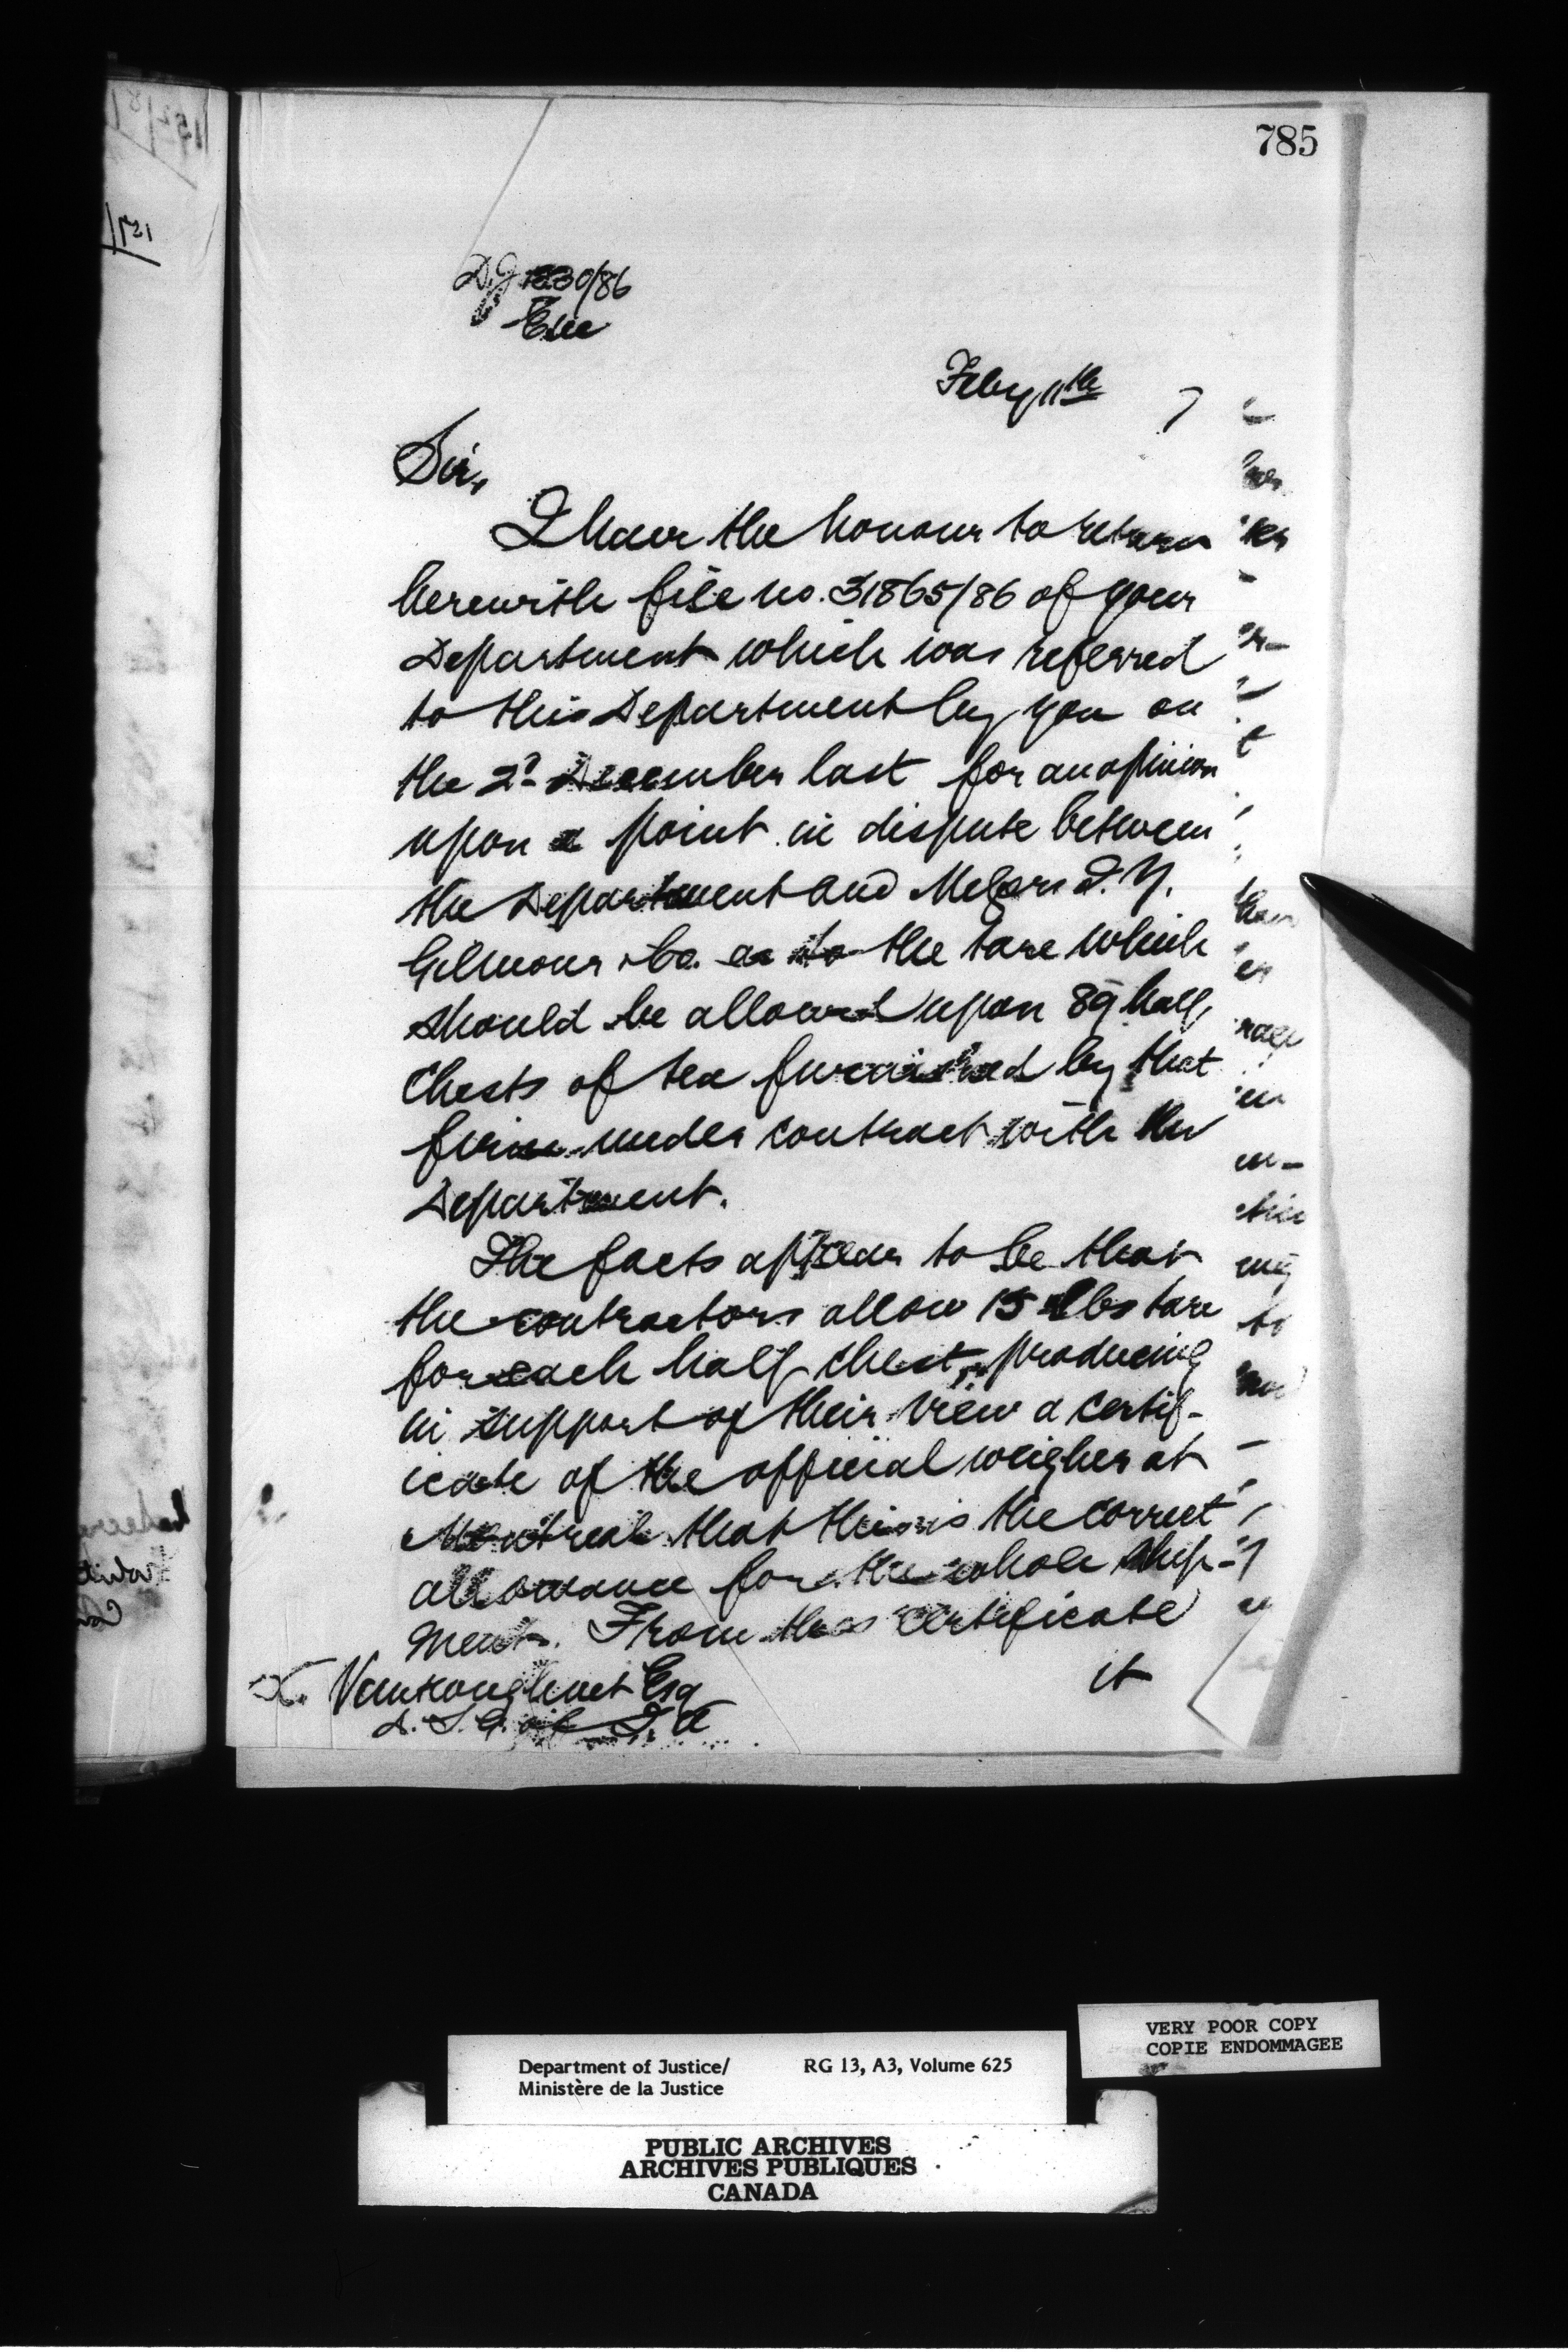 785
D.J. 1230/86
Enc
Feby 11th 7
Sir,
I have the honour to return
herewith file no. 31865/86 of your
Department which was referred
to this Department by you on
the 2d December last for an opinion
upon a point in dispute between
the Department and Messrs J. Y.
Gilmour & Co. as to the tare which
should be allowed upon 89 half
Chests of tea furnished by that
firm under contract with the
Department.
The facts appear to be that
the contractors allow 15 lbs tare
for each half chest, producing
in support of their view a certif-
icate of the official weigher at
Montreal that this is the correct
allowance for the whole ship-
ment. From this certificate
it
L. Vankoughnet Esq
D. S. G. of I. A
VERY POOR COPY
COPIE ENDOMMAGEE
Department of Justice/ RG 13, A3, Volume 625
Ministère de la Justice
PUBLIC ARCHIVES
ARCHIVES PUBLIQUES
CANADA